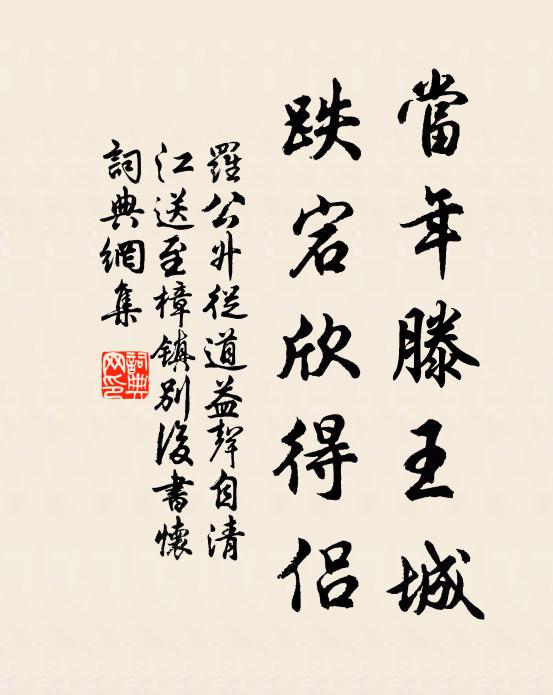 當年滕王城
跌宕欣得侶
羅公升從道益聲自清
江送至樟鎮別後書懷
詞典網集
詞典網印